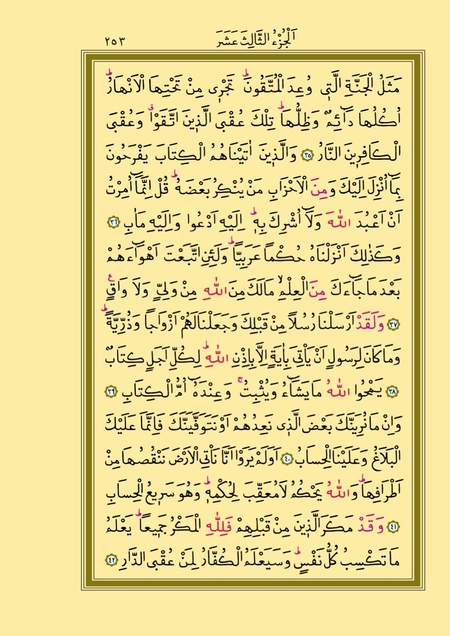 اَلْجُزْءُ الثَّالِثَ عَشَرَ ٢٥٣
مَثَلُ الْجَنَّةِ الَّتٖي وُعِدَ الْمُتَّقُونَؕ تَجْرٖي مِنْ تَحْتِهَا الْاَنْهَارُؕ
اُكُلُهَا دَٓائِمٌ وَظِلُّهَاؕ تِلْكَ عُقْبَى الَّذٖينَ اتَّقَوْاۗ وَعُقْبَى
الْكَافِرٖينَ النَّارُ ﴿٣٥﴾ وَالَّذٖينَ اٰتَيْنَاهُمُ الْكِتَابَ يَفْرَحُونَ
بِمَٓا اُنْزِلَ اِلَيْكَ وَمِنَ الْاَحْزَابِ مَنْ يُنْكِرُ بَعْضَهُؕ قُلْ اِنَّمَٓا اُمِرْتُ
اَنْ اَعْبُدَ اللّٰهَ وَلَٓا اُشْرِكَ بِهٖؕ اِلَيْهِ اَدْعُوا وَاِلَيْهِ مَاٰبِ ﴿٣٦﴾
وَكَذٰلِكَ اَنْزَلْنَاهُ حُكْمًا عَرَبِيًّاؕ وَلَئِنِ اتَّبَعْتَ اَهْوَٓاءَهُمْ
بَعْدَ مَا جَٓاءَكَ مِنَ الْعِلْمِۙ مَا لَكَ مِنَ اللّٰهِ مِنْ وَلِيٍّ وَلَا وَاقٍۚ
﴿٣٧﴾ وَلَقَدْ اَرْسَلْنَا رُسُلًا مِنْ قَبْلِكَ وَجَعَلْنَا لَهُمْ اَزْوَاجًا وَذُرِّيَّةًؕ
وَمَا كَانَ لِرَسُولٍ اَنْ يَأْتِيَ بِاٰيَةٍ اِلَّا بِاِذْنِ اللّٰهِؕ لِكُلِّ اَجَلٍ كِتَابٌ
﴿٣٨﴾ يَمْحُوا اللّٰهُ مَا يَشَٓاءُ وَيُثْبِتُۚ وَعِنْدَهُٓ اُمُّ الْكِتَابِ ﴿٣٩﴾
وَاِنْ مَا نُرِيَنَّكَ بَعْضَ الَّذٖي نَعِدُهُمْ اَوْ نَتَوَفَّيَنَّكَ فَاِنَّمَا عَلَيْكَ
الْبَلَاغُ وَعَلَيْنَا الْحِسَابُ ﴿٤٠﴾ اَوَلَمْ يَرَوْا اَنَّا نَأْتِي الْاَرْضَ نَنْقُصُهَا مِنْ
اَطْرَافِهَاؕ وَاللّٰهُ يَحْكُمُ لَا مُعَقِّبَ لِحُكْمِهٖؕ وَهُوَ سَرٖيعُ الْحِسَابِ
﴿٤١﴾ وَقَدْ مَكَرَ الَّذٖينَ مِنْ قَبْلِهِمْ فَلِلّٰهِ الْمَكْرُ جَمٖيعًاؕ يَعْلَمُ
مَا تَكْسِبُ كُلُّ نَفْسٍؕ وَسَيَعْلَمُ الْكُفَّارُ لِمَنْ عُقْبَى الدَّارِ ﴿٤٢﴾